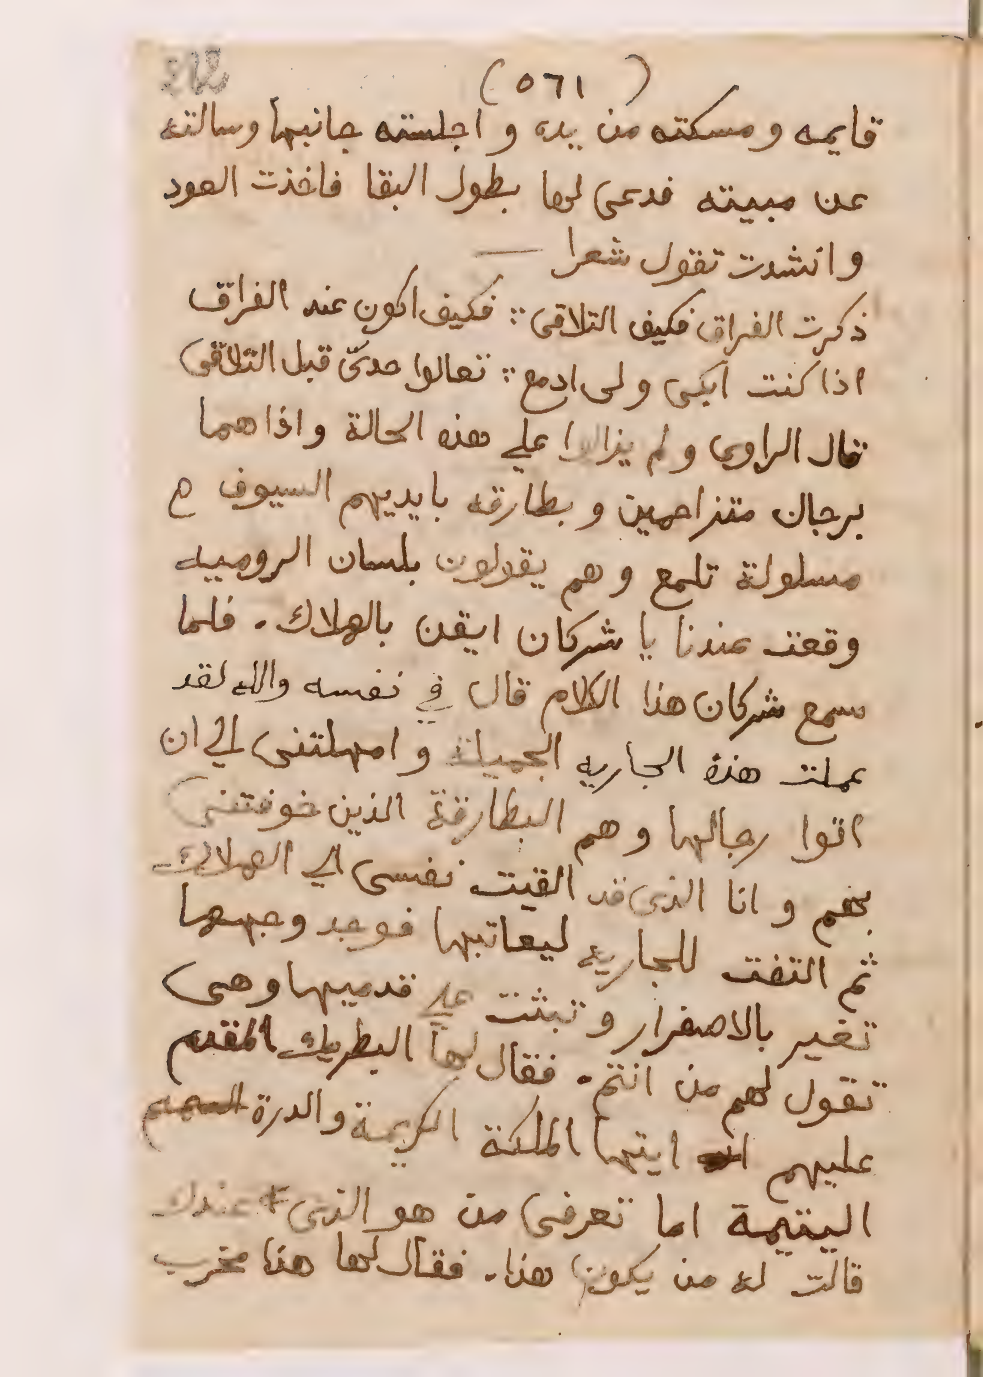 (٥٦١)
قايمه ومسكته من يده و اجلسته جانبها وسالته
عن مبيته فدعى لها بطول البقا فاخذت العود
وانشدت تقول شعرا
ذكرت الفراق فكيف التلاقى ∴ فكيف اكون عند الفراق
اذا كنت ابكى ولى ادمع ∴ تعالوا حدىّ قبل التلاقى
قال الراوى ولم يزالوا على هذه الحالة واذا هما
برجال متزاحمين و بطارقه بايديهم السيوف
مسلولة تلمع وهم يقولون بلسان الروميه
وقعت عندنا يا شركان ايقن بالهلاك. فلما
سمع شركان هذا الكلام قال في نفسه والله لقد
عملت هذه الجاريه الجميلة و امهلتنى الي ان
اتوا رجالها وهم البطارقة الذين خوفتنى
بهم و انا الذى قد القيت نفسى الي الهلاك
ثم التفت للجاريه ليعاتبها فوجد وجهها
تغير بالاصفرار و تبثت على قدميها وهى
تقول لهم من انتم. فقال لها البطريك المقدم
عليهم ايتها الملكة الكريمة والدرة
اليتيمة اما تعرفى من هو الذى عندك
قالت له من يكون هذا. فقال لها هذا مخرب